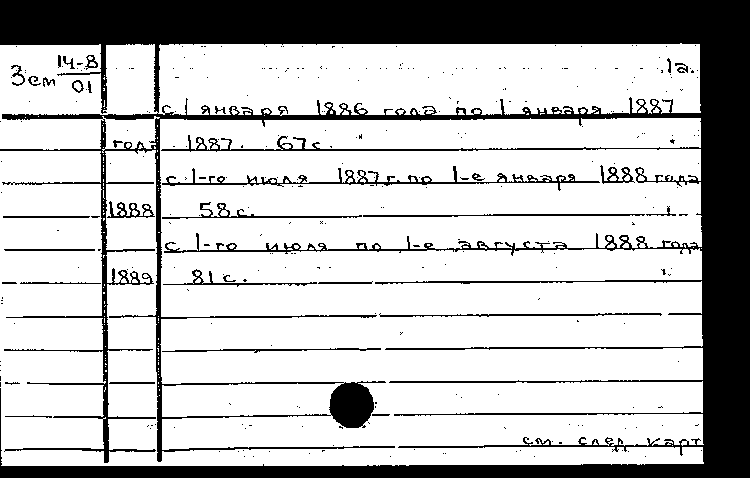 Зем 14-8
01
1а.
с 1 января 1886 года по 1 января 1887
года 1887. 67с.
с 1-го июля 1887г. по 1-е января 1888 года
1888 58с.
с 1-го июля по 1-е августа 1888 года
1889 81с.
см. след. карт